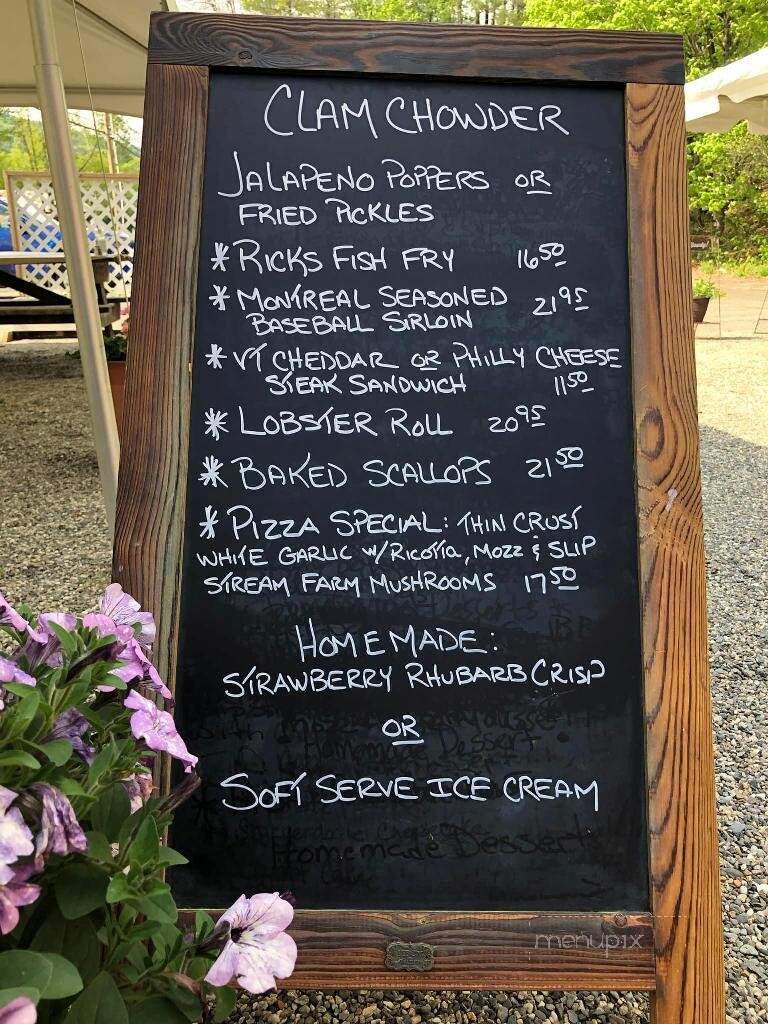 CLAM CHOWDER
JALAPENO POPPERS OR
FRIED PICKLES
* RICKS FISH FRY 16 50
* MONTREAL SEASONED 21 95
BASEBALL SIRLOIN
* VT CHEDDAR OR PHILLY CHEESE
STEAK SANDWICH 11 50
* LOBSTER ROLL 20 95
* BAKED SCALLOPS 21 50
* PIZZA SPECIAL: THIN CRUST
WHITE GARLIC W/RICOTTA, MOZZ & SLIP
STREAM FARM MUSHROOMS 17 50
HOMEMADE:
STRAWBERRY RHUBARB CRISP
OR
Homemade Dessert
SOFT SERVE ICE CREAM
Homemade Dessert
menupix